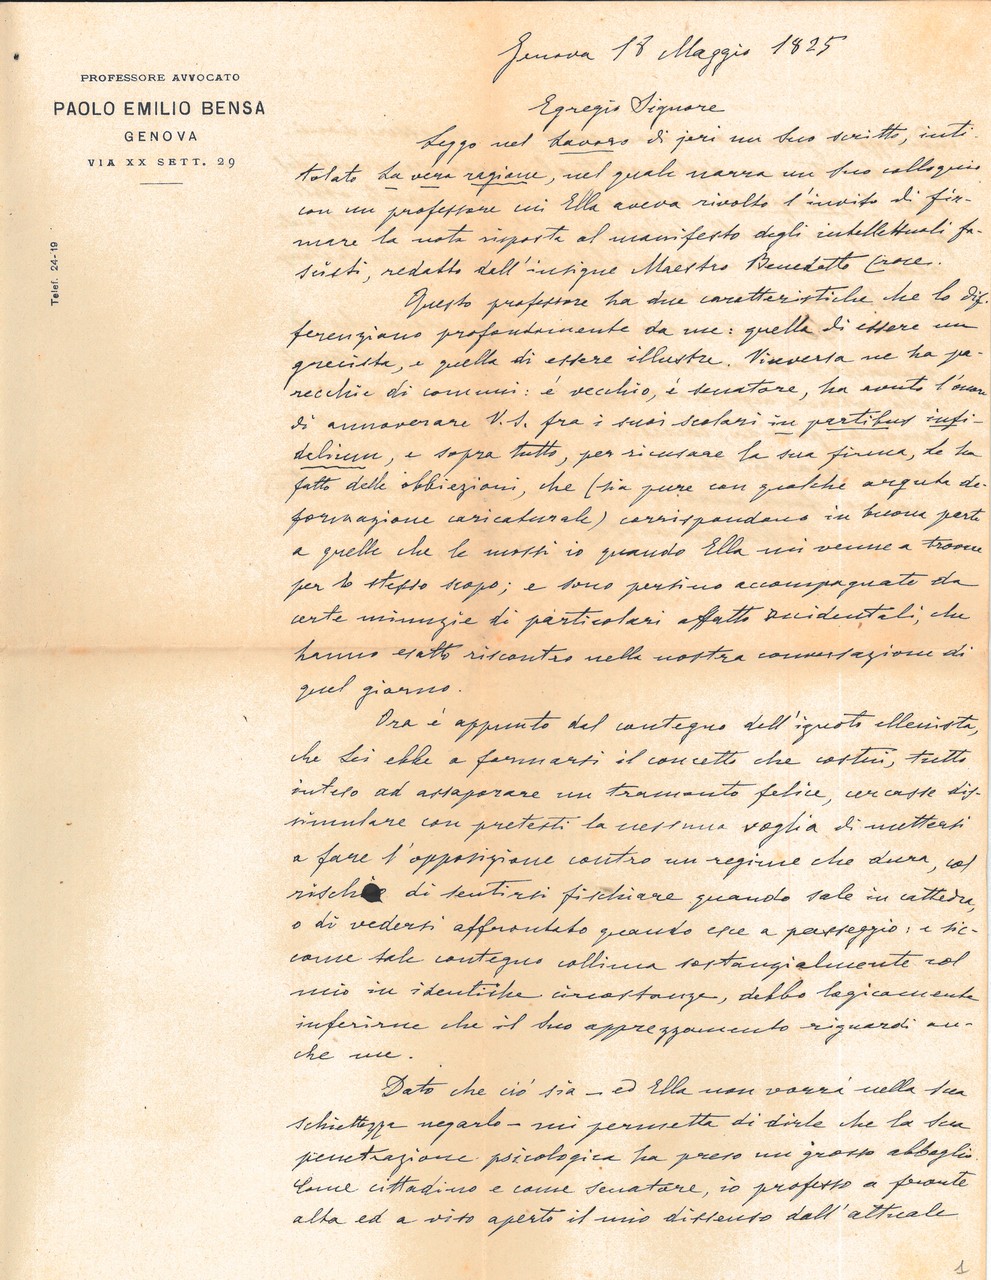 PROFESSORE AVVOCATO
PAOLO EMILIO BENSA
GENOVA
VIA XX SETT. 29
Telef. 24-19
Genova 18 Maggio 1825
Egregio Signore
Leggo nel Lavoro di jeri un Suo scritto, inti-
tolato La vera ragione, nel quale narra un Suo colloquio
con un professore cui Ella aveva rivolto l'invito di fir-
mare la nota risposta al manifesto degli intellettuali fa-
scisti, redatto dall'insigne Maestro Benedetto Croce.
Questo professore ha due caratteristiche che lo dif-
ferenziano profondamente da me: quella di essere un
grecista, e quella di essere illustre. Viceversa ne ha pa-
recchie di comuni: è vecchio, è senatore, ha avuto l'onore
di annoverare V.S. fra i suoi scolari in partibus infi-
delium, e sopra tutto, per ricusare la sua firma, Le ha
fatto delle obbiezioni, che (sia pure con qualche arguta de-
formazione caricaturale) corrispondono in buona parte
a quelle che le mossi io quando Ella mi venne a trovare
per lo stesso scopo; e sono persino accompagnate da
certe minuzie di particolari affatto accidentali, che
hanno esatto riscontro nella nostra conversazione di
quel giorno.
Ora è appunto dal contegno dell'ignoto ellenista,
che Lei ebbe a formarsi il concetto che costui, tutto
inteso ad assaporare un tramonto felice, cercasse dis-
simulare con pretesti la nessuna voglia di mettersi
a fare l'opposizione contro un regime che dura, col
rischio di sentirsi fischiare quando sale in cattedra,
o di vedersi affrontato quando esce a passeggio: e sic-
come tale contegno collima sostanzialmente col
mio in identiche circostanze, debbo logicamente
inferirne che il Suo apprezzamento riguardi an-
che me.
Dato che ciò sia — ed Ella non vorrà nella sua
schiettezza negarlo — mi permetta di dirle che la sua
penetrazione psicologica ha preso un grosso abbaglio.
Come cittadino e come senatore, io professo a fronte
alta ed a viso aperto il mio dissenso dall'attuale
1